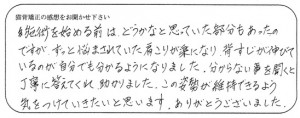 猫背矯正の感想をお聞かせ下さい
施術を始める前は、どうかなと思っていた部分もあったの
ですが、ずっと悩まされていた肩こりが楽になり、背すじが伸びて
いるのが自分でも分かるようになりました。分からない事を聞くと
丁寧に答えてくれ、助かりました。この姿勢が維持できるよう
気をつけていきたいと思います。ありがとうございました。